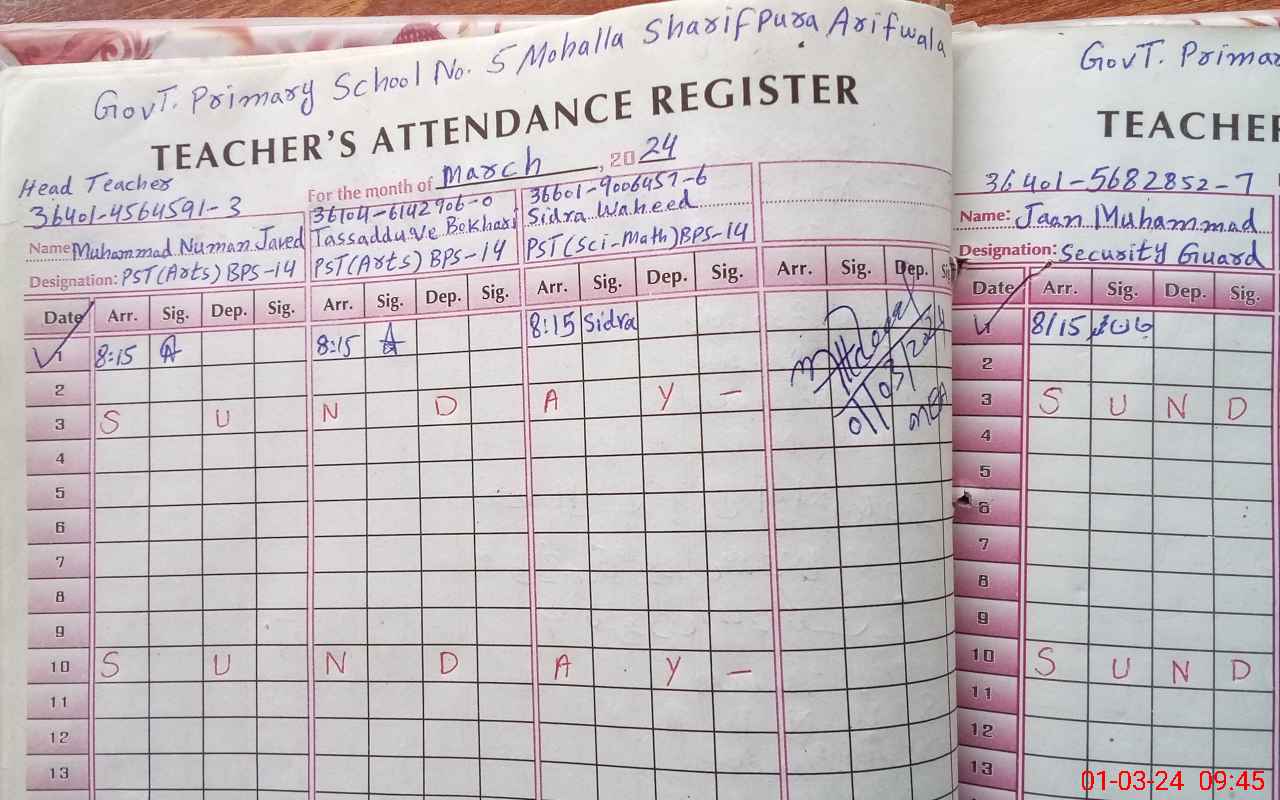 GovT. Primary School No. 5 Mohalla Sharifpura Arifwala
TEACHER'S ATTENDANCE REGISTER
For the month of March, 2024
Head Teacher
36401-4564591-3
Name: Muhammad Numan Javed
Designation: PST(Arts) BPS-14
36104-6142906-0
Tassadduve Bokhari
PST(Arts) BPS-14
36601-9006457-6
Sidra Waheed
PST(Sci-Math) BPS-14
Date Arr. Sig. Dep. Sig. Arr. Sig. Dep. Sig. Arr. Sig. Dep. Sig. Arr. Sig. Dep. Sig.
1 8:15 8:15 8:15 Sidra
2
3 S U N D A Y –
4
5
6
7
8
9
10 S U N D A Y –
11
12
13
01/03/2024
MEA
GovT. Primar
TEACHER
36401-5682852-7
Name: Jaan Muhammad
Designation: Security Guard
Date Arr. Sig. Dep. Sig.
1 8/15
2
3 S U N D
4
5
6
7
8
9
10 S U N D
11
12
13
01-03-24 09:45